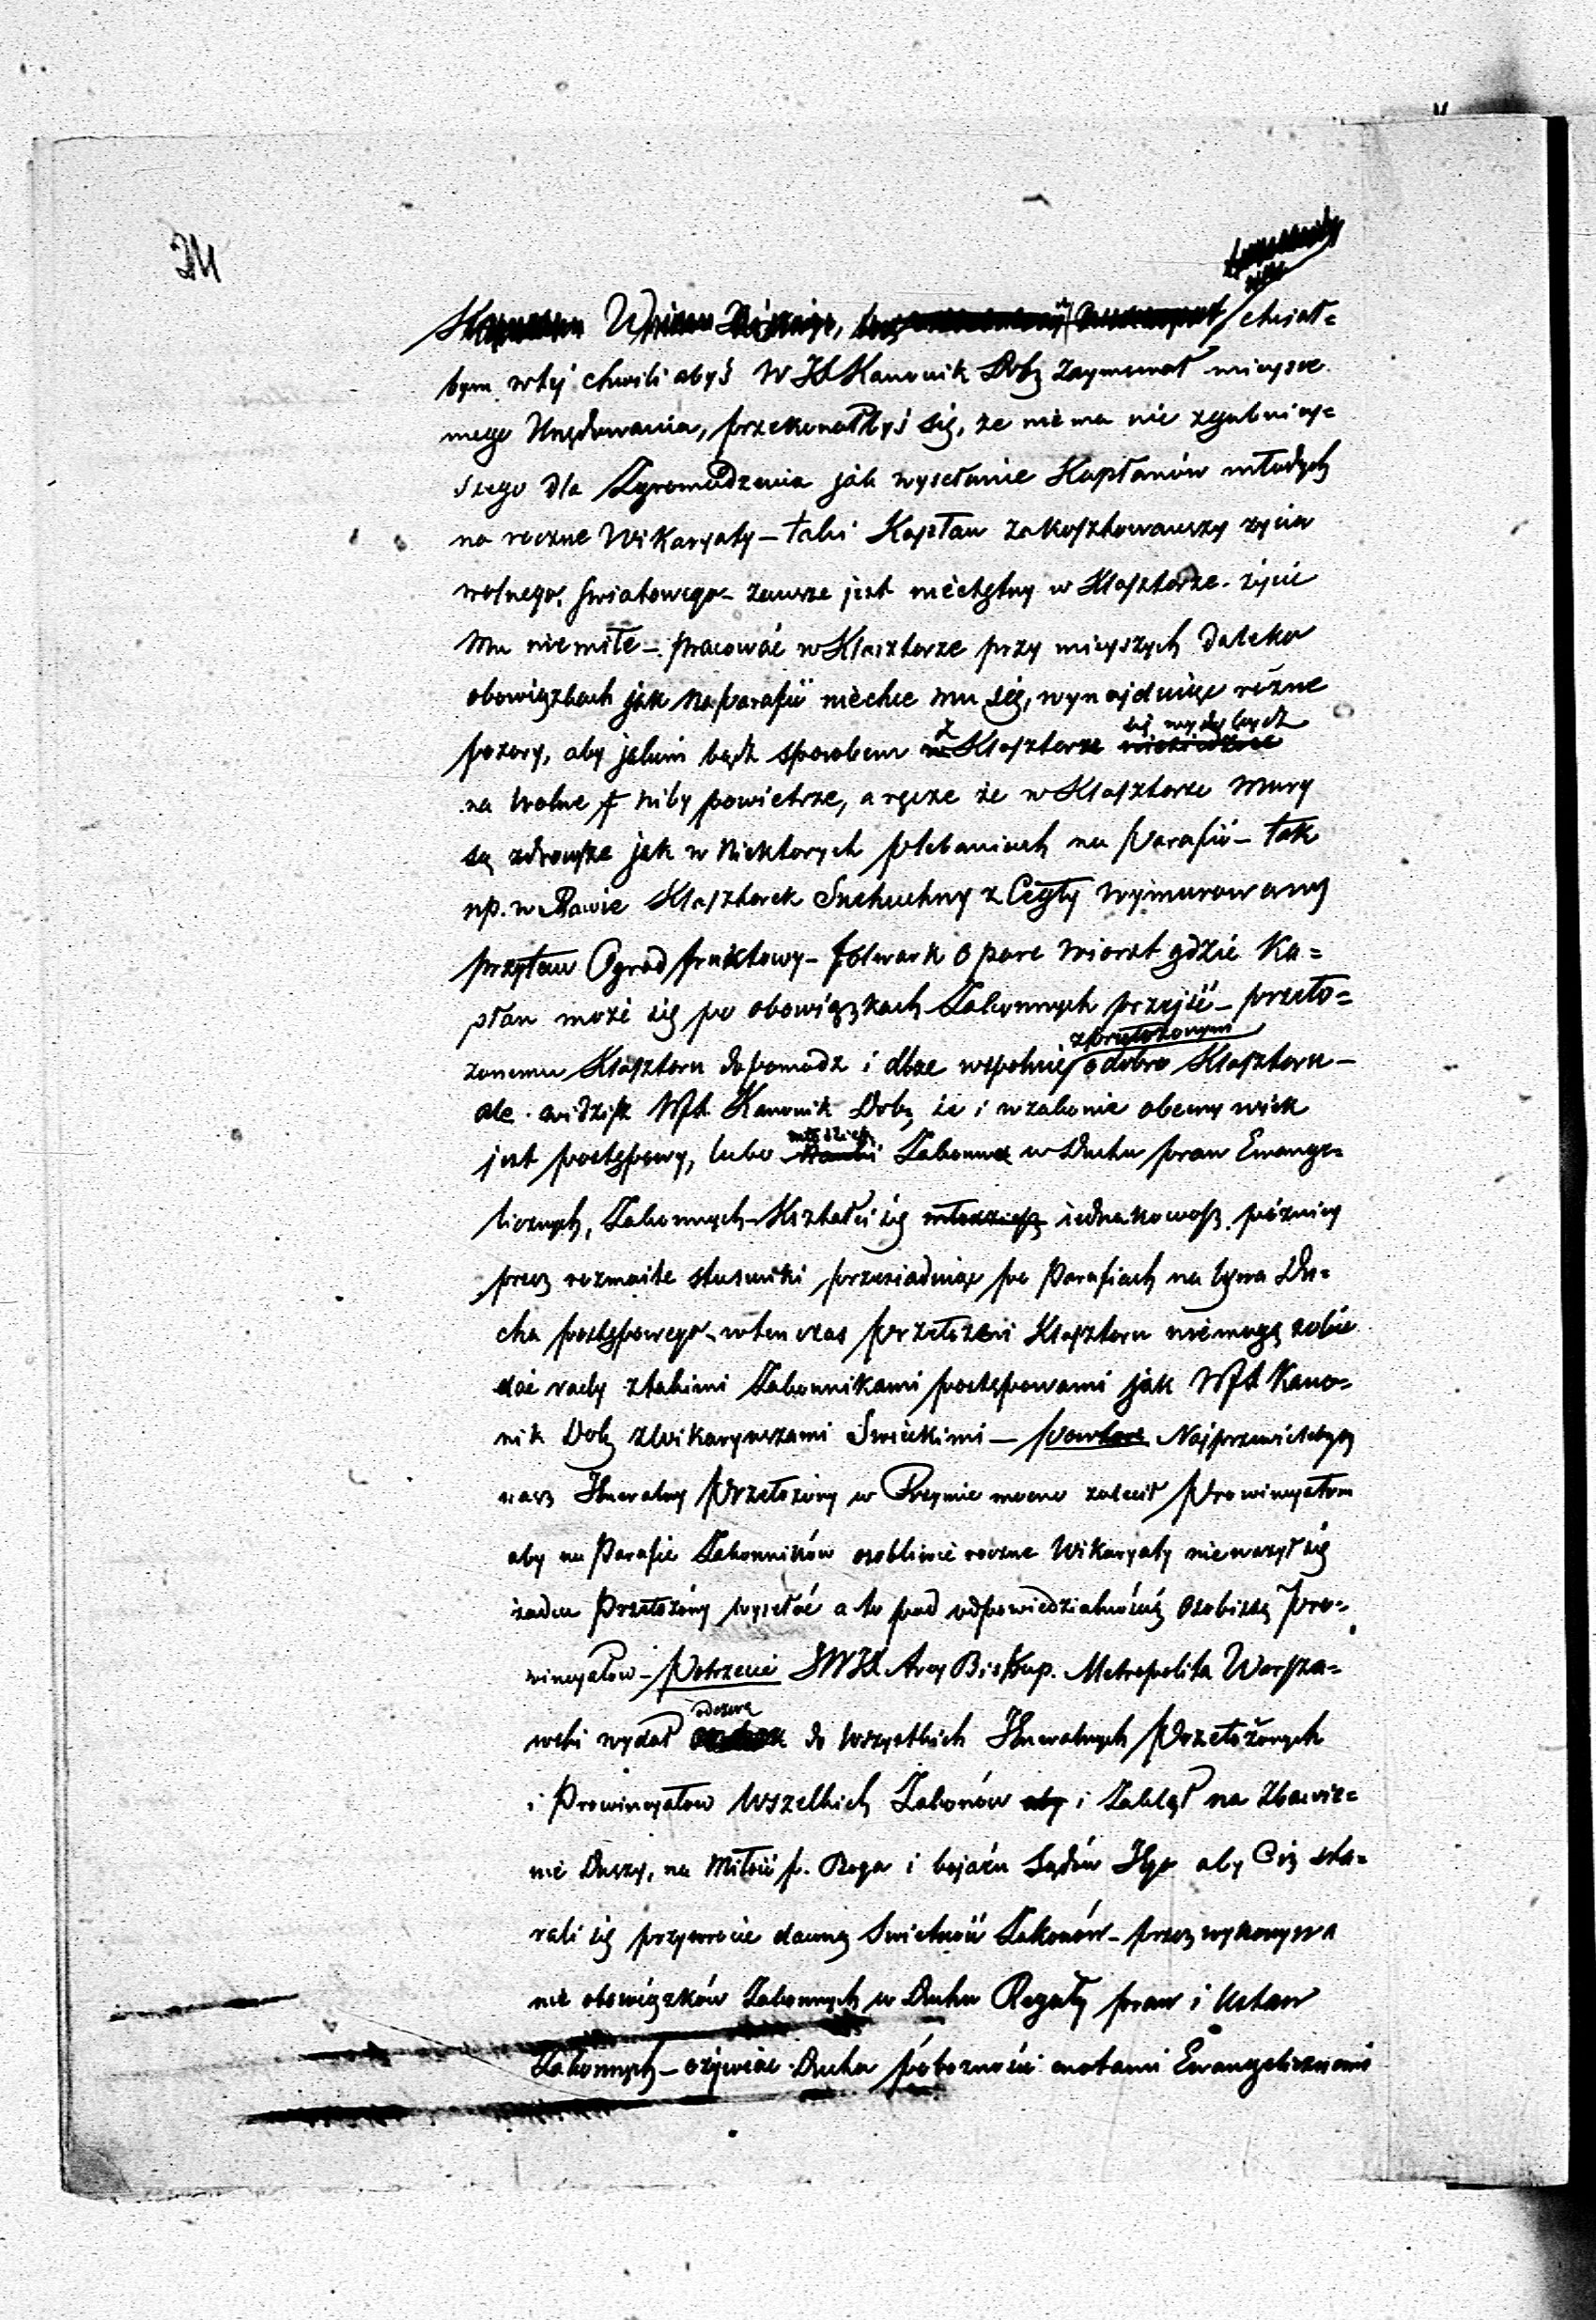 chciał=
bym w tej chwili abyś W JX Kanonik Dobr Zaymował mieysce
mego Urzędowania, przekonałbyś się, że nie ma nic zgubniey=
szego dla Zgromadzenia jak wysełanie Kapłanów młodych
na roczne Wikaryaty – taki Kapłan zakosztowawszy życia
wolnego, światowego – zawsze jest niechętny w Klasztorze – życie
mu niemiłe – pracować w Klasztorze przy mieyszych daleko
obowiązkach jak na parafii niechce mu się, wynajduiąc rózne
pozory, aby jakim bądź sposobem z Klasztorze się wydobydź
na wolne niby powietrze, a ręczę że w Klasztorze mury
są zdrowsze jak w niektorych plebaniach na Parafii – tak
np. w Rawie Klasztorek Suchuchny z Cegły wymurowany
przytem Ogrod fruktowy – folwark o pare wiorst gdzie Ka=
płan może się po obowiązkach Zakonnych przejść – przeło=
zonemu Klasztoru dopomodz i dbac wspolnie z przełożonymi o dobro Klasztoru –
ale widzisz WJX Kanonik Dobr, że i w zakonie obecny wiek
jest postępowy, lubo młodzież Zakonna w Duchu praw Ewange=
licznych, Zakonnych – Kształci się młodzież jednakowoż pózniey
przez rozmaite stosunki przesiaduiąc po Parafiach nabywa Du=
cha postępowego – wtenczas Przełożeni Klasztoru niemogą sobie
dać rady z takimi Zakonnikami postępowami jak WJX Kano=
nik Dobr z Wikaryuszami Swieckimi – Powtore Najprzewielebnieyszy
nasz Jeneralny Przełożony w Rzymie mocno zalecił Prowincyałom
aby na Parafie Zakonników osobliwie roczne Wikaryaty nieważył się
żaden Przełożony wysełać a to pod odpowiedzialnością Osobistą Pro=
wincyałow – Potrzecie JWJX Arcy Biskup. Metropolita Warsza=
wski wydał odezwę do Wszystkich Jeneralnych Przełożonych
i Prowincyałow Wszelkich Zakonów aby i Zaklął na Zbawie=
nie Duszy, na Miłość p. Boga i bojaźn Sądów Jego aby Ciż sta=
rali się przywrocic dawną Swietność Zakonów – przez wykonywa
nie obowiązków Zakonnych w Duchu Reguły praw i Ustaw
Zakonnych – ożywiac Ducha pobozności cnotami Ewangelicznemi